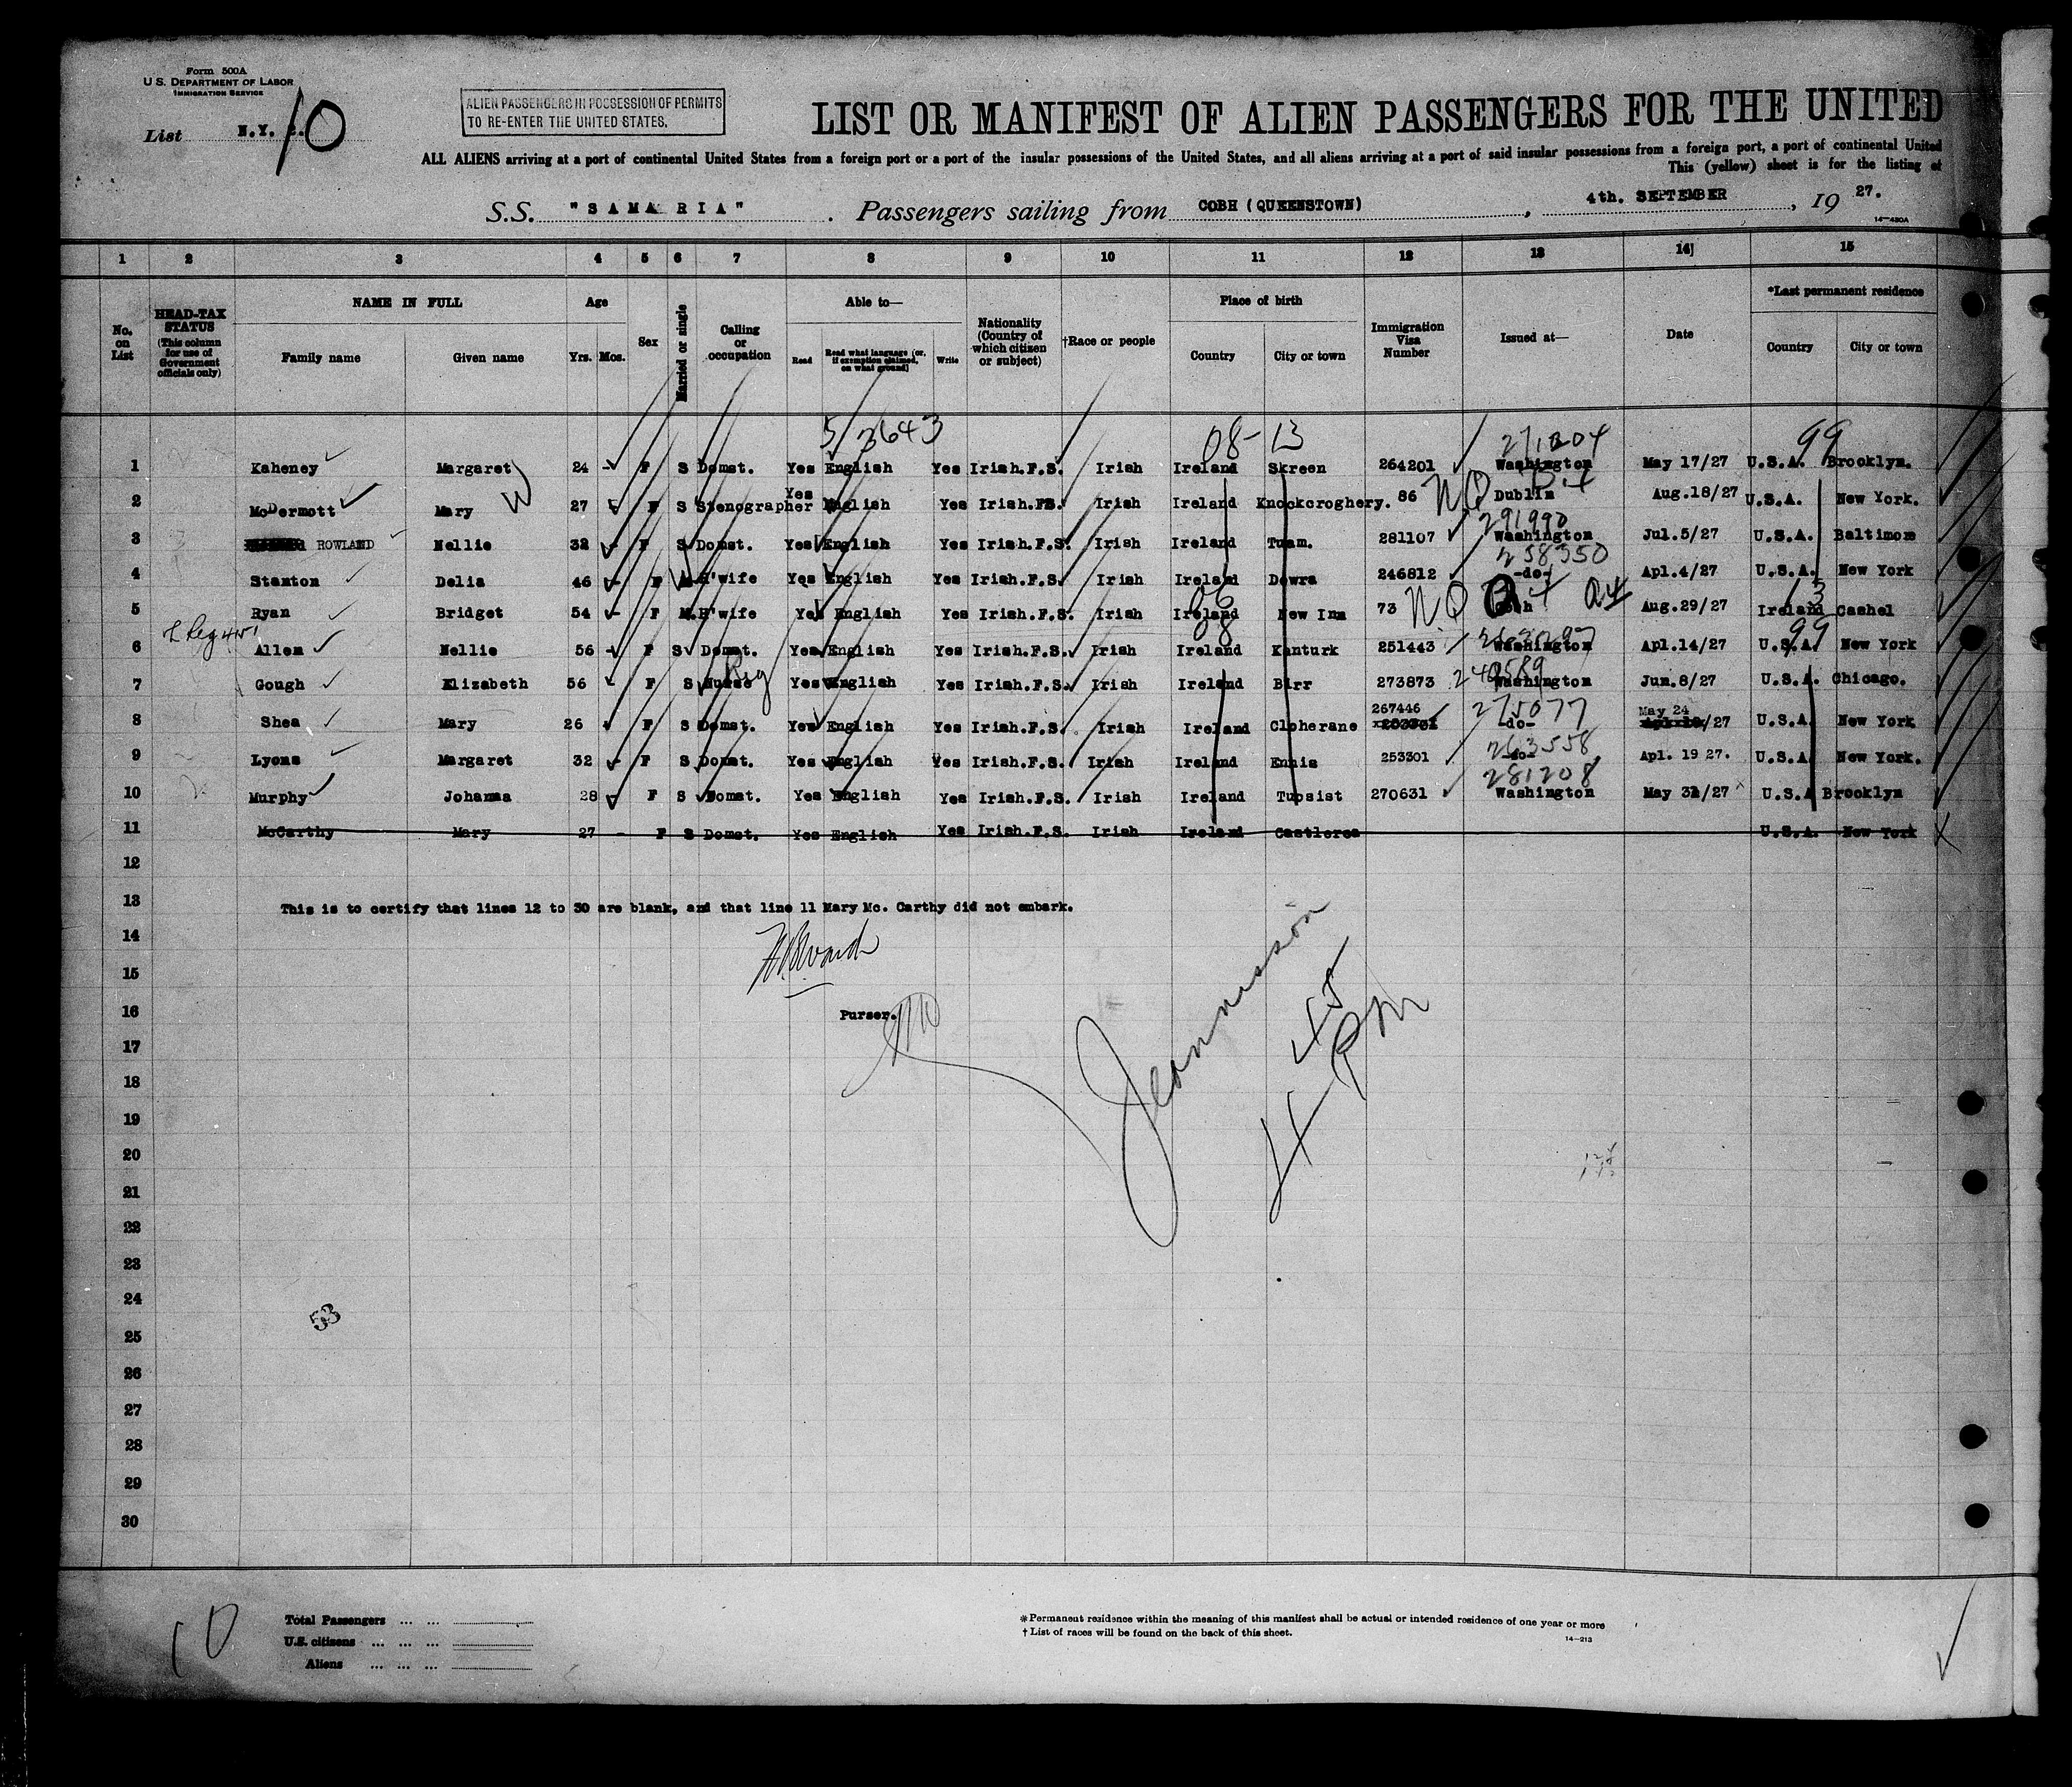 Form 500A
U.S. DEPARTMENT OF LABOR
IMMIGRATION SERVICE
List N.Y. 10
ALIEN PASSENGERS IN POSSESSION OF PERMITS
TO RE-ENTER THE UNITED STATES.
LIST OR MANIFEST OF ALIEN PASSENGERS FOR THE UNITED
ALL ALIENS arriving at a port of continental United States from a foreign port or a port of the insular possessions of the United States, and all aliens arriving at a port of said insular possessions from a foreign port, a port of continental United
This (yellow) sheet is for the listing of
S.S. "SAMARIA" . Passengers sailing from COBH (QUEENSTOWN) , 4th. SEPTEMBER , 19 27.
14—430A
1 2 3 4 5 6 7 8 9 10 11 12 13 14 15
No. on List
HEAD-TAX STATUS (This column for use of Government officials only)
NAME IN FULL
Family name Given name
Age
Yrs. Mos.
Sex
Married or single
Calling or occupation
Able to—
Read Read what language [or, if exemption claimed, on what ground] Write
Nationality (Country of which citizen or subject)
†Race or people
Place of birth
Country City or town
Immigration Visa Number
Issued at—
Date
*Last permanent residence
Country City or town
5/3643 08-13 271204 99
1 Kaheney Margaret 24 - F S Domst. Yes English Yes Irish.F.S. Irish Ireland Skreen 264201 Washington May 17/27 U.S.A. Brooklyn.
2 McDermott Mary W 27 F S Stenographer Yes English Yes Irish.FS. Irish Ireland Knockcroghery. 86 NQ Dublin Aug.18/27 U.S.A. New York.
291990
3 ROWLAND Nellie 32 - F S Domst. Yes English Yes Irish.F.S. Irish Ireland Tuam. 281107 Washington Jul.5/27 U.S.A. Baltimore
258350
4 Stanton Delia 46 - F M H'wife Yes English Yes Irish.F.S. Irish Ireland Dowra 246812 -do- Apl.4/27 U.S.A. New York
06 13
5 Ryan Bridget 54 - F M. H'wife Yes English Yes Irish.F.S. Irish Ireland New Inn 73 NQ Aug.29/27 Ireland Cashel
08 99
6 Allen Nellie 56 - F S Domst. Yes English Yes Irish.F.S. Irish Ireland Kanturk 251443 Washington Apl.14/27 U.S.A. New York
Reg
7 Gough Elizabeth 56 - F S Nurse Yes English Yes Irish.F.S. Irish Ireland Birr 273873 Washington Jun.8/27 U.S.A. Chicago.
267446 275077 May 24
8 Shea Mary 26 F S Domst. Yes English Yes Irish.F.S. Irish Ireland Cloherane -do- /27 U.S.A. New York
263558
9 Lyons Margaret 32 - F S Domst. Yes English Yes Irish.F.S. Irish Ireland Ennis 253301 -do- Apl. 19 27. U.S.A New York.
281208
10 Murphy Johanna 28 F S Domst. Yes English Yes Irish.F.S. Irish Ireland Tupsist 270631 Washington May 31/27 U.S.A Brooklyn
11 McCarthy Mary 27 - F S Domst. Yes English Yes Irish.F.S. Irish Ireland Castlerea U.S.A. New York
12
13 This is to certify that lines 12 to 30 are blank, and that line 11 Mary Mc. Carthy did not embark.
14
15
16 Purser.
17
18
19
20
21
22
23
24
53
25
26
27
28
29
30
4 45 PM
10
Total Passengers ... ...
U.S. citizens ... ... ...
Aliens ... ... ...
*Permanent residence within the meaning of this manifest shall be actual or intended residence of one year or more
†List of races will be found on the back of this sheet.
14—213